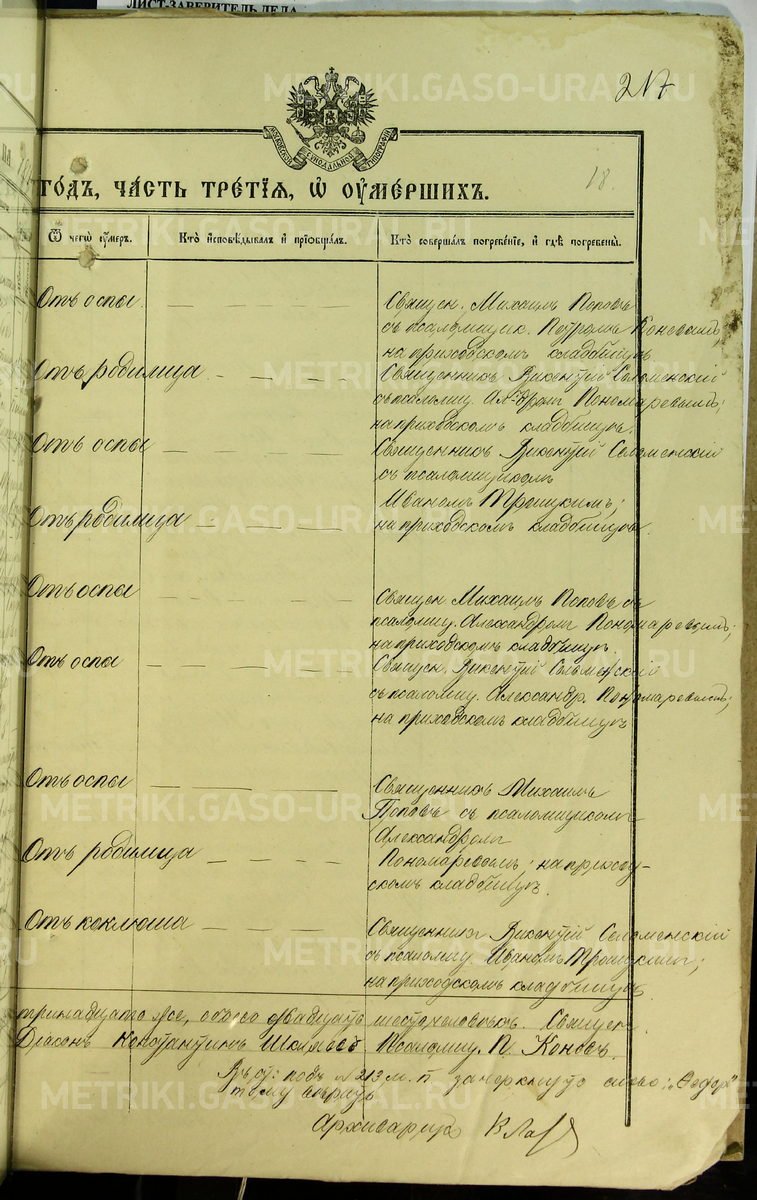 ЛИСТ-ЗАВЕРИТЕЛЬ ДЕЛА
METRIKI.GASO-URAL.RU
217
18.
МОСКОВСКОЙ СѴНОДАЛЬНОЙ ТИПОГРАФІИ
го́дъ, ча́сть тре́тїѧ, ѡ оу҆ме́ршихъ.
Ѿ чегѡ̀ оу҆́меръ.
Кто̀ и҆сповѣ́дывалъ и҆ прїѻбща́лъ.
Кто̀ соверша́лъ погребе́нїе, и҆ гдѣ̀ погребены̀.
Отъ оспы
Священ. Михаилъ Поповъ
съ псаломщик. Петромъ Коневымъ;
на приходскомъ кладбищѣ
Отъ родимца
Священникъ Викентій Селеменскій
съ псаломщ. Ал-дромъ Пономаревымъ;
на приходскомъ кладбищѣ.
Отъ оспы
Священникъ Викентій Селеменскій
съ псаломщикомъ
Иваномъ Троицкимъ;
Отъ родимца
на приходскомъ кладбищѣ.
Отъ оспы
Священ Михаилъ Поповъ съ
псаломщ. Александромъ Пономаревымъ;
на приходскомъ кладбищѣ.
Отъ оспы
Священ. Викентій Селеменскій
съ псаломщ. Александр. Пономаревымъ;
на приходскомъ кладбищѣ
Отъ оспы
Священникъ Михаилъ
Поповъ съ псаломщикомъ
Александромъ
Отъ родимца
Пономаревымъ; на приход-
скомъ кладбищѣ.
Отъ коклюша
Священникъ Викентій Селеменскій
съ псаломщ. Иваномъ Троицкимъ;
на приходскомъ кладбищѣ
тринадцать же, обоего двадцать шесть человѣкъ. Священ.
Діаконъ Константинъ Псаломщ. П. Коневъ.
подъ № 213 м. п зачеркнуто слово: „Федоръ"
тому вѣрить
Архиваріусъ